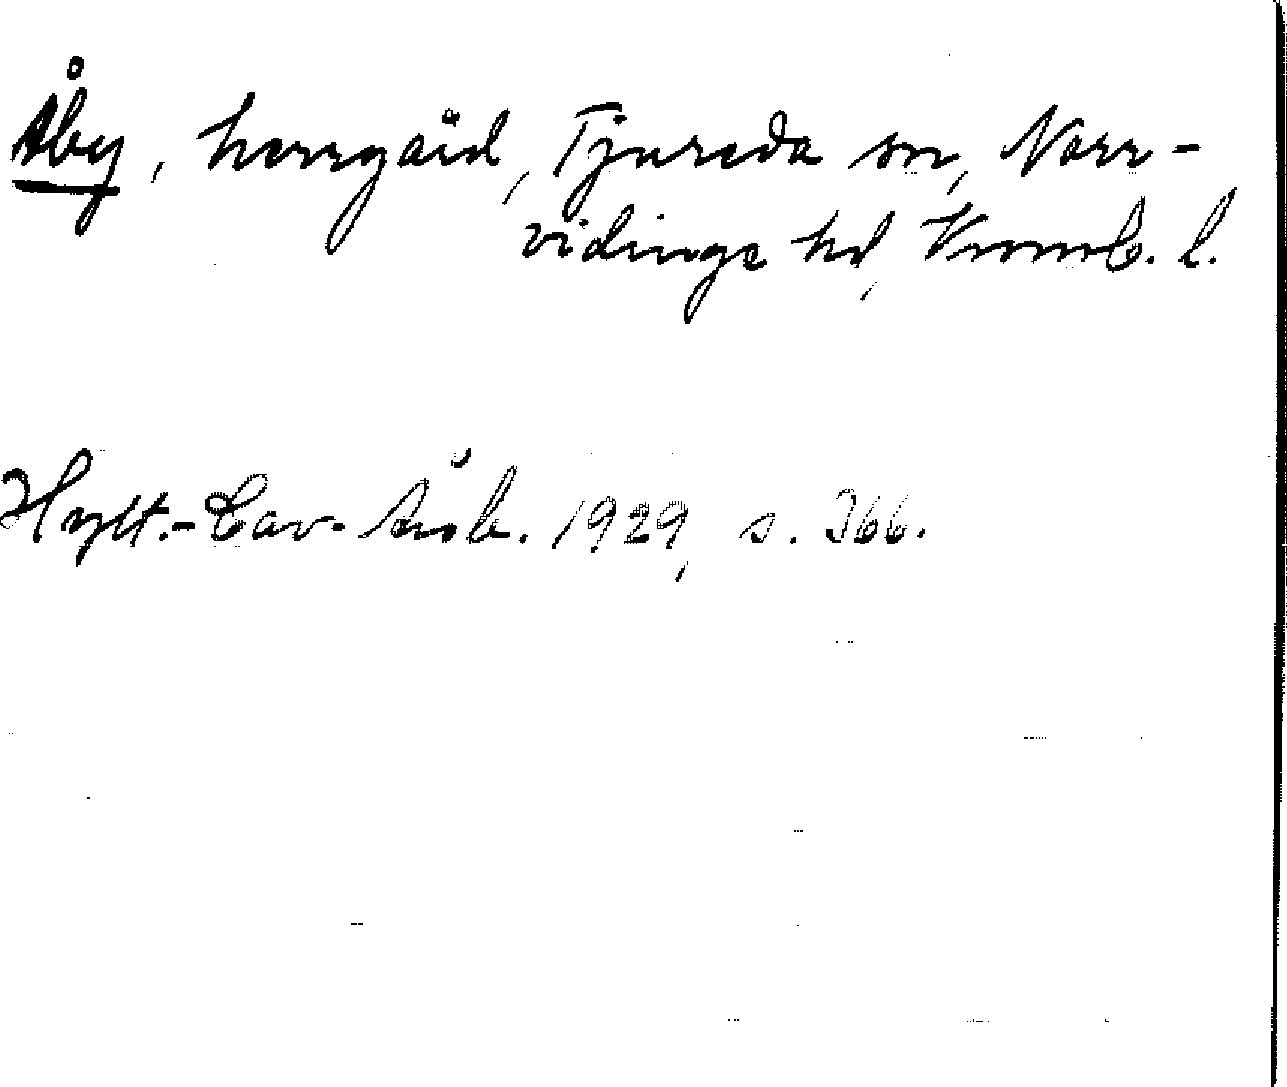 Åby, herrgård, Tjureda sn, Norr-
vidinge hd, Kronob. l.
Hylt.-Cav. Årsb. 1929, s. 366.